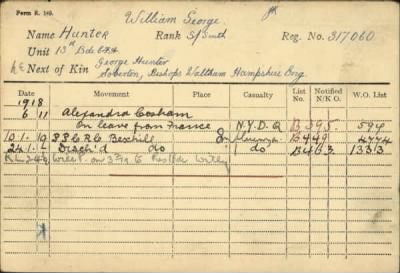 Form R. 149.
William George
Name Hunter Rank S/Smith Reg. No. 317060
Unit 13th Bde C.F.A.
Next of Kin George Hunter
Soberton, Bishops Waltham Hampshire Eng.
Date Movement Place Casualty List No. Notified N/K O. W.O. List
1918
6 11 Alexandra Cosham
On leave from France N.Y.D. B395. 594
10.1.19 P.P.C.R.C. Bexhill Influenza B449 4774
24.1. Disch'd do do B463. 1333